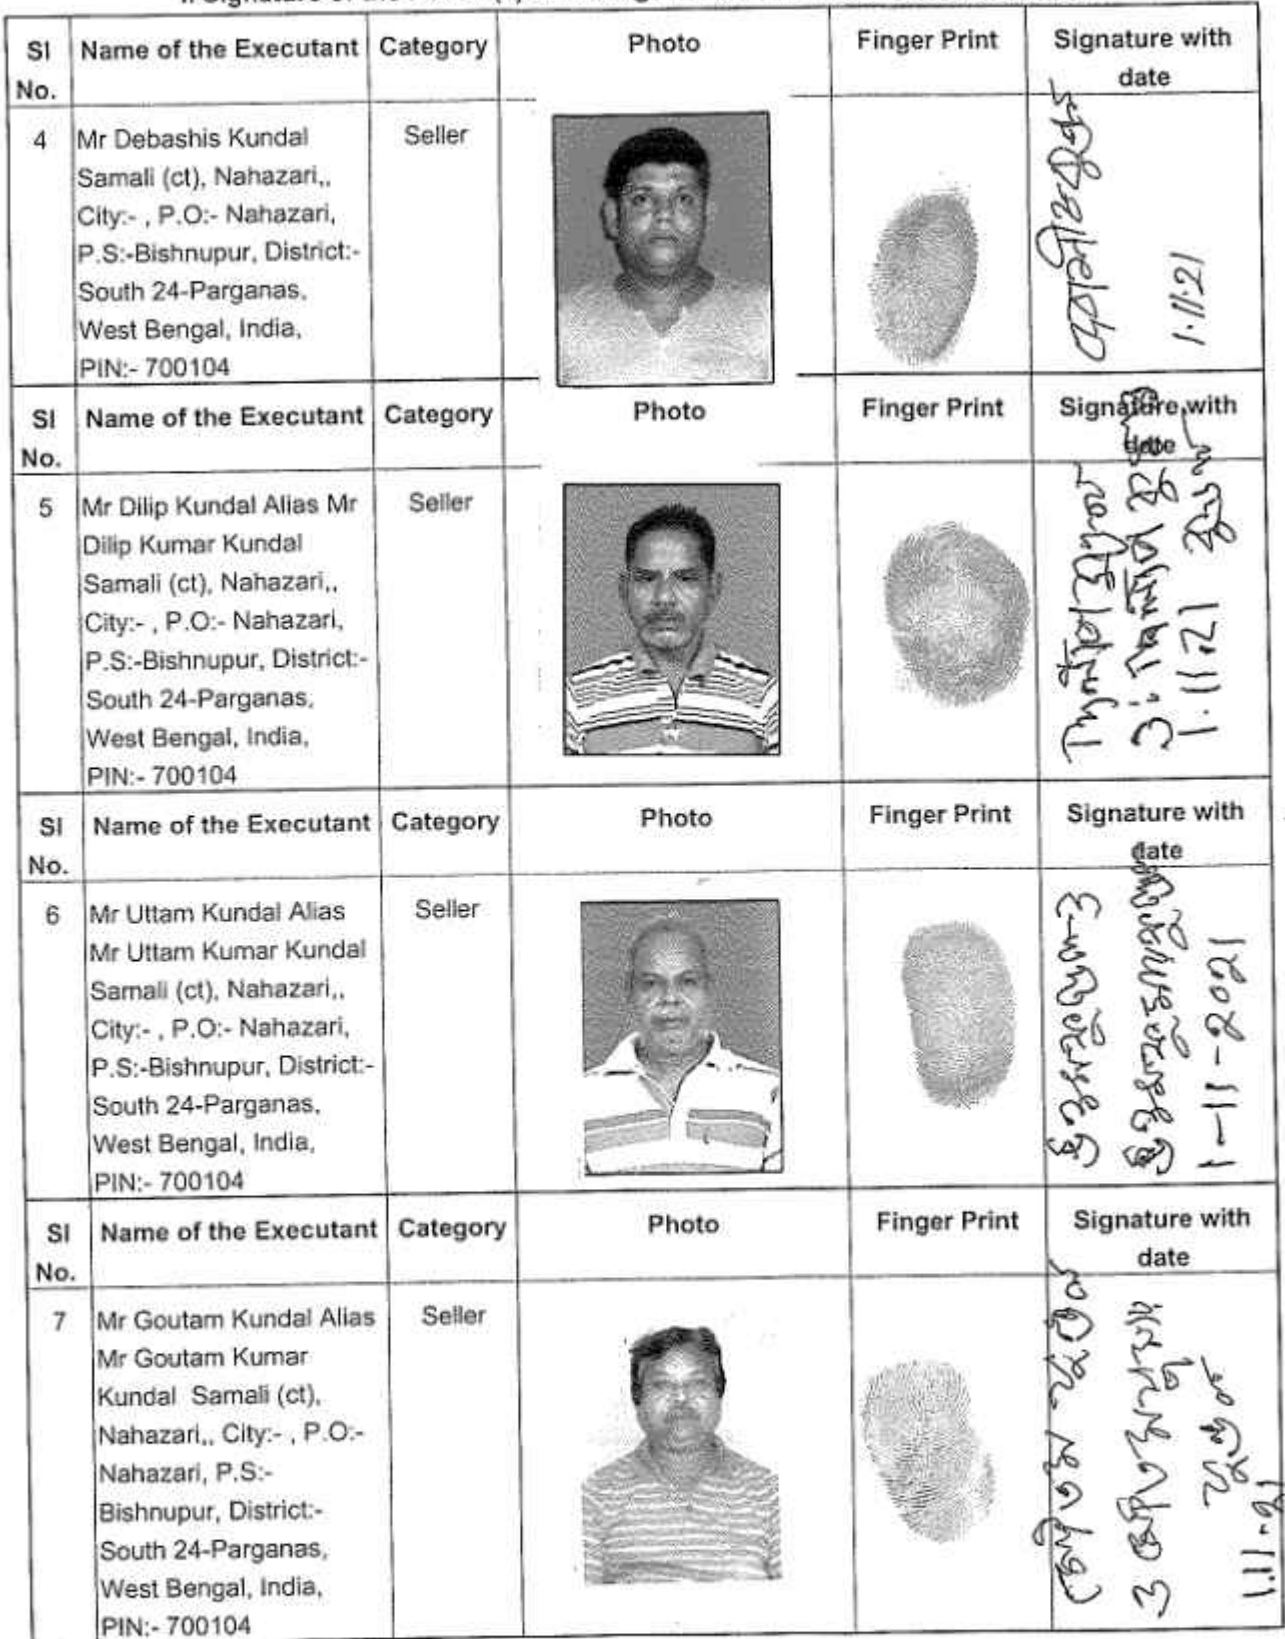 Sl No.	Name of the Executant	Category	Photo	Finger Print	Signature with date
4	Mr Debashis Kundal	Seller
Samali (ct), Nahazari,,
City:- , P.O:- Nahazari,
P.S:-Bishnupur, District:-
South 24-Parganas,
West Bengal, India,
PIN:- 700104
1.11.21
Sl No.	Name of the Executant	Category	Photo	Finger Print	Signature with date
5	Mr Dilip Kundal Alias Mr	Seller
Dilip Kumar Kundal
Samali (ct), Nahazari,,
City:- , P.O:- Nahazari,
P.S:-Bishnupur, District:-
South 24-Parganas,
West Bengal, India,
PIN:- 700104
1.11.21
Sl No.	Name of the Executant	Category	Photo	Finger Print	Signature with date
6	Mr Uttam Kundal Alias	Seller
Mr Uttam Kumar Kundal
Samali (ct), Nahazari,,
City:- , P.O:- Nahazari,
P.S:-Bishnupur, District:-
South 24-Parganas,
West Bengal, India,
PIN:- 700104
1-11-2021
Sl No.	Name of the Executant	Category	Photo	Finger Print	Signature with date
7	Mr Goutam Kundal Alias	Seller
Mr Goutam Kumar
Kundal Samali (ct),
Nahazari,, City:- , P.O:-
Nahazari, P.S:-
Bishnupur, District:-
South 24-Parganas,
West Bengal, India,
PIN:- 700104